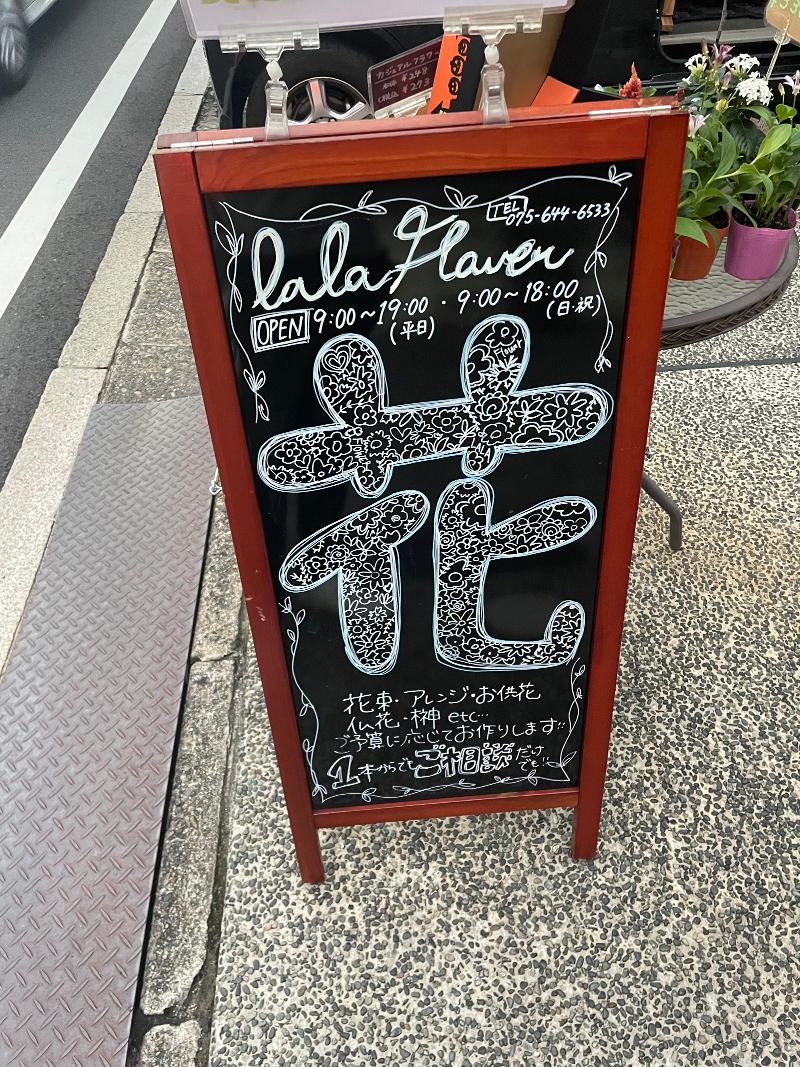 カジュアルフラワー
本体 ¥248
(税込 ¥273
TEL
075-644-6533
lala Flaver
OPEN 9:00~19:00・9:00~18:00
(平日) (日・祝)
花
花束・アレンジ・お供花
仏花・榊 etc…
ご予算に応じてお作りします!!
1本からでもご相談だけでも!!